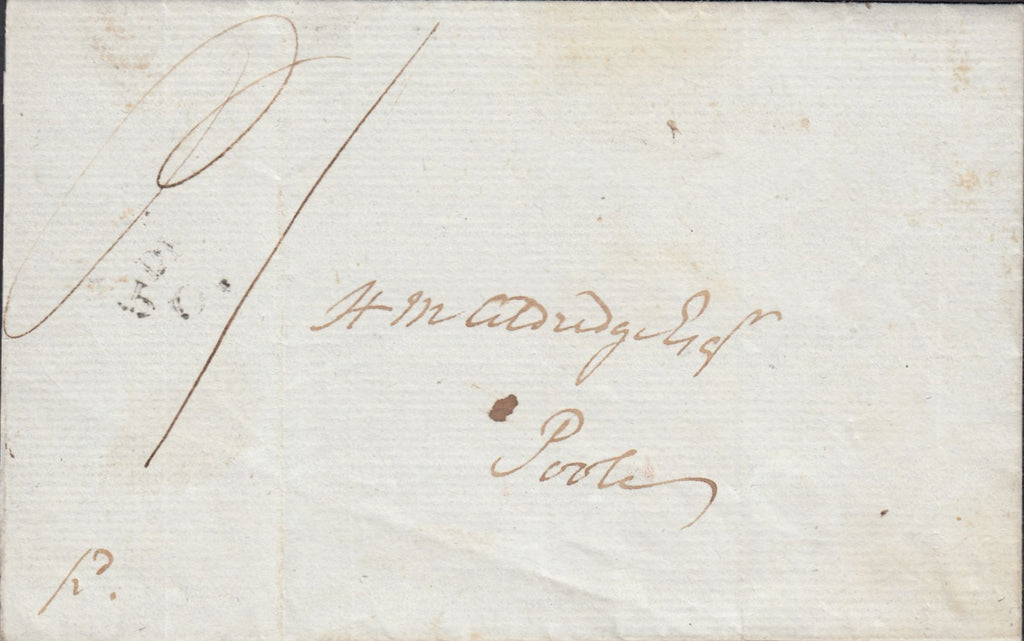 H M Aldridge Esqr
Poole
pd.